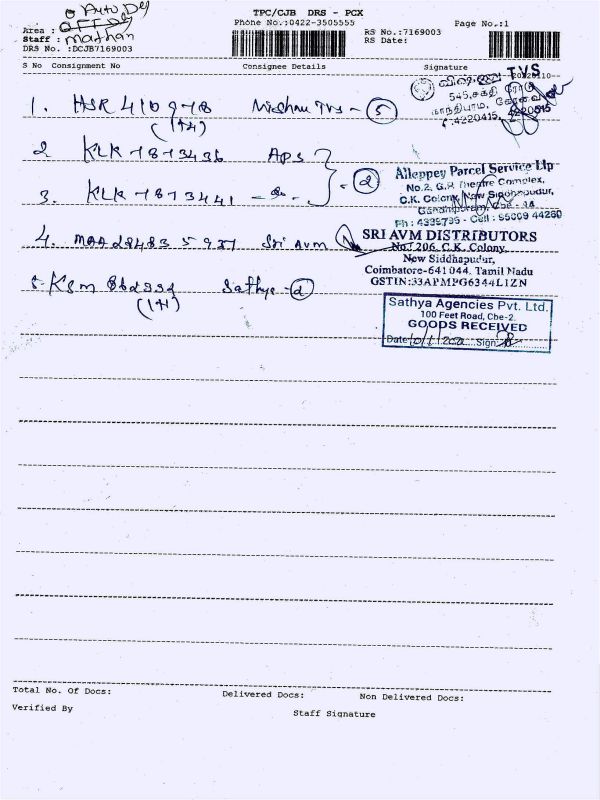 Auto Del
TPC/CJB DRS - PCX
Area :
Phone No.:0422-3505555
Page No.:1
RS No.:7169003
Staff : Mathan
RS Date:
DRS No. :DCJB7169003
S No Consignment No Consignee Details Signature
TVS
545, சக்தி ரோடு
காந்திபுரம், கோவை
1. HSR 4109718 TVS - 5
(1+4)
2. KLK 7873436 APS
3. KLK 7873441 - do - - 2
Alleppey Parcel Service Llp
No.2, G.P. Theatre Complex,
C.K. Colony, New Siddhapudur,
Gandhipuram, Cbe - 44
Ph : 4335735 - Cell : 95009 44280
4. Sri AVM
SRI AVM DISTRIBUTORS
No.1 206, C.K. Colony,
New Siddhapudur,
Coimbatore-641 044. Tamil Nadu
GSTIN:33APMPG6344L1ZN
5. KSM Sathya - 2
(1+1)
Sathya Agencies Pvt. Ltd.
100 Feet Road, Cbe-2.
GOODS RECEIVED
Date Sign
Total No. Of Docs: Delivered Docs: Non Delivered Docs:
Verified By
Staff Signature